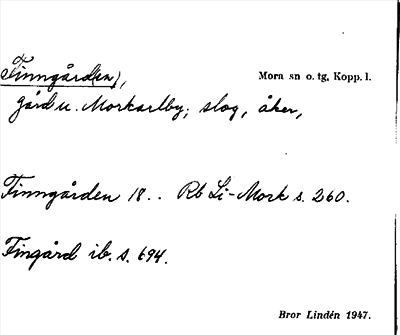 Finngård(en), Mora sn o. tg, Kopp. l.
gård u. Morkarlby; slog, åker,
Finngården 18.. Rb Li-Mork s. 260.
Fingård ib. s. 694.
Bror Lindén 1947.